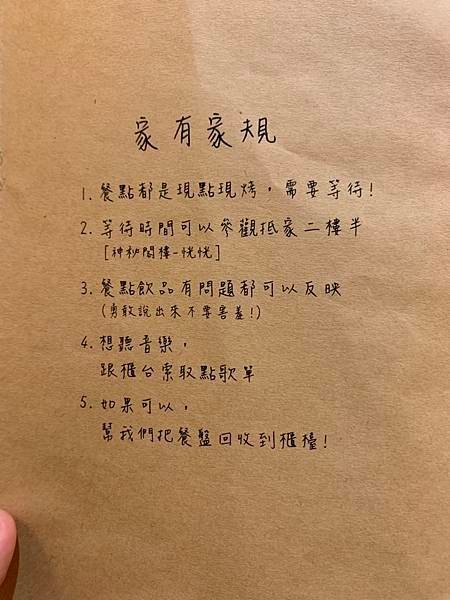 家有家規
1. 餐點都是現點現烤,需要等待!
2. 等待時間可以參觀抵家二樓半
[神秘閣樓-恍恍]
3. 餐點飲品有問題都可以反映
(勇敢說出來不要害羞!)
4. 想聽音樂,
跟櫃台索取點歌單
5. 如果可以,
幫我們把餐盤回收到櫃檯!